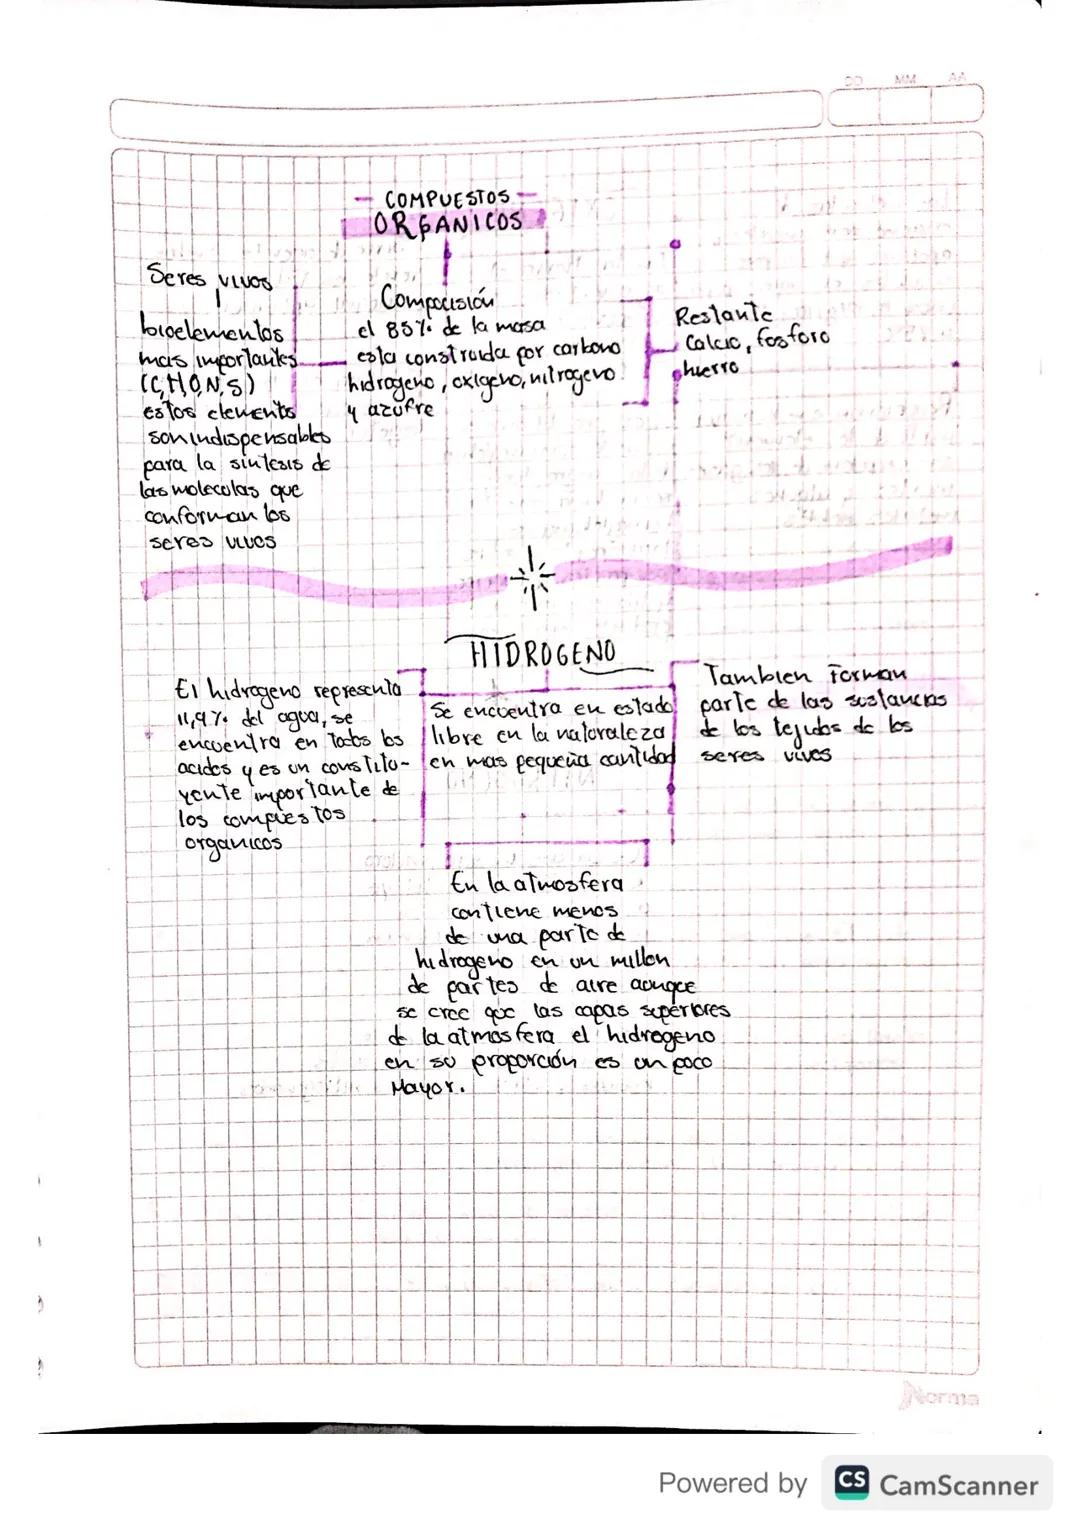 DD MM AA
COMPUESTOS
ORGANICOS
Seres vivos
bioelementos
mas importantes
(C,H,O,N,S)
estos elemento
son indispensables
para la sintesis de
las molecolas que
conforman los
seres vivos
Composisión
el 85% de la masa
esta construida por carbono
hidrogeno, oxigeno, nitrogeno
y azufre
Restante
Calcio, fosforo
hierro
HIDROGENO
El hidrogeno representa
11,9% del agua, se
encuentra en todos los
acidos y es un constitu-
yente importante de
los compuestos
organicos
Se encuentra en estado
libre en la naturaleza
en mas pequeña cantidad
Tambien forman
parte de las sustancias
de los tejidos de los
seres vivos
En la atmosfera
contiene menos
de una parte de
hidrogeno en un millon
de partes de aire aunque
se cree que las capas superiores
de la atmosfera el hidrogeno
en su proporción es un poco
Mayor.
Norma
Powered by CS CamScanner